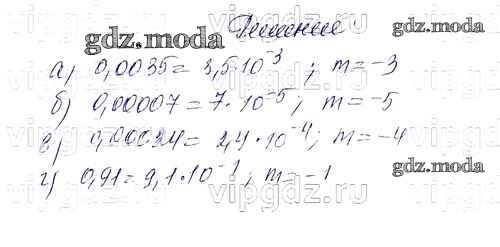 Решение
gdz.moda
а) 0,0035 = 3,5·10⁻³ ; m = -3
б) 0,00007 = 7·10⁻⁵ ; m = -5
gdz.moda
в) 0,00024 = 2,4·10⁻⁴ ; m = -4
gdz.moda
г) 0,91 = 9,1·10⁻¹ ; m = -1
vipgdz.ru